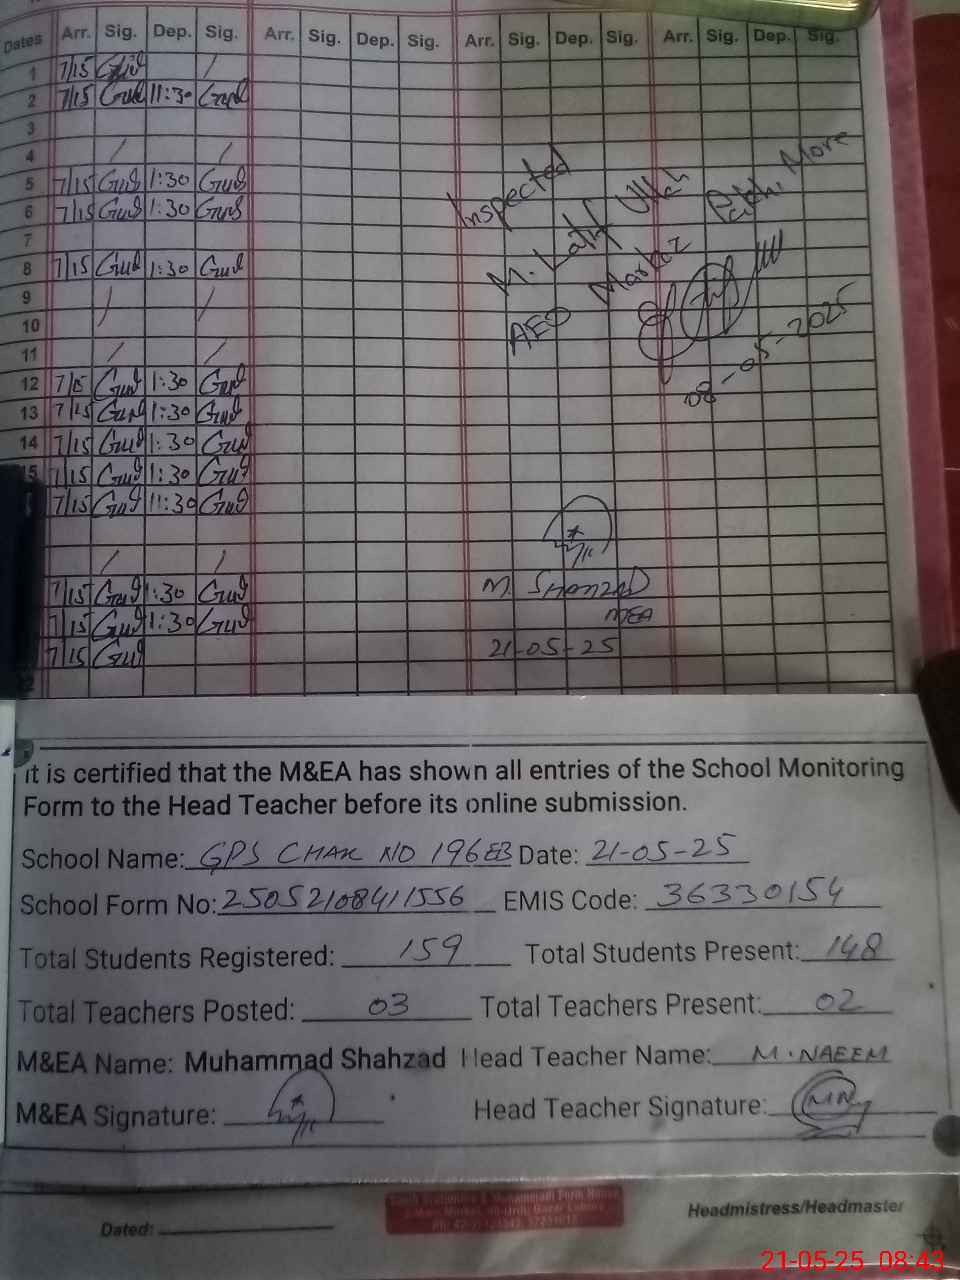 Dates Arr. Sig. Dep. Sig. Arr. Sig. Dep. Sig. Arr. Sig. Dep. Sig. Arr. Sig. Dep. Sig.
1 7/15
2 7/15 11:30
3
4
5 7/15 1:30
6 7/15 1:30
7
8 7/15 1:30
9
10
11
12 7/15 1:30
13 7/15 1:30
14 7/15 1:30
15 7/15 1:30
7/15 11:30
7/15 1:30
7/15 1:30
7/15
Inspected
M. Latif Ullah
AEO Markaz Pakhi More
08-05-2025
M. SHAHZAD
MEA
21-05-25
It is certified that the M&EA has shown all entries of the School Monitoring
Form to the Head Teacher before its online submission.
School Name: GPS CHAK NO 196EB Date: 21-05-25
School Form No: 25052108411556 EMIS Code: 36330154
Total Students Registered: 159 Total Students Present: 148
Total Teachers Posted: 03 Total Teachers Present: 02
M&EA Name: Muhammad Shahzad Head Teacher Name: M.NAEEM
M&EA Signature: Head Teacher Signature: MN
Dated: Headmistress/Headmaster
21-05-25 08:43